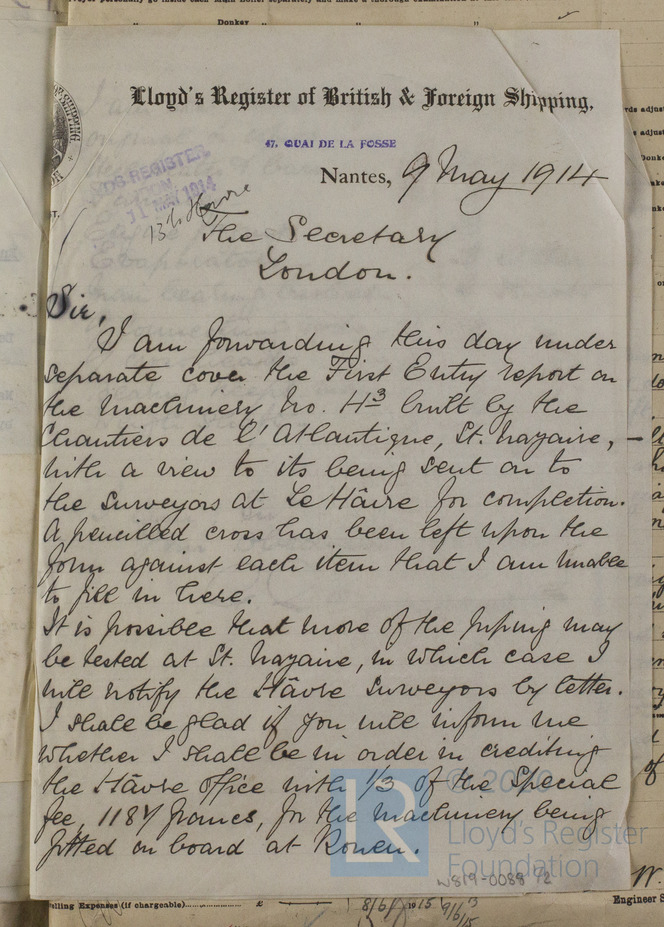 Donker
Lloyd's Register of British & Foreign Shipping,
47. QUAI DE LA FOSSE
Nantes, 9 May 1914
LOYDS REGISTER
11 MAY 1914
13th Havre
The Secretary
London.
Sir,
I am forwarding this day under
separate cover the First Entry report on
the machinery No. H3 built by the
Chantiers de l'Atlantique, St. Nazaire, —
with a view to its being sent on to
the surveyors at Le Hâvre for completion.
A pencilled cross has been left upon the
form against each item that I am unable
to fill in here.
It is possible that more of the piping may
be tested at St. Nazaire, in which case I
will notify the Hâvre Surveyors by letter.
I shall be glad if you will inform me
whether I shall be in order in crediting
the Hâvre office with 1/3 of the Special
fee, 1187 francs, for the machinery being
fitted on board at Rouen.
© 2020
LR
Lloyd's Register
Foundation
W819-0088 1/2
elling Expenses (if chargeable) £
8/6/1915 9/6/15
Engineer S